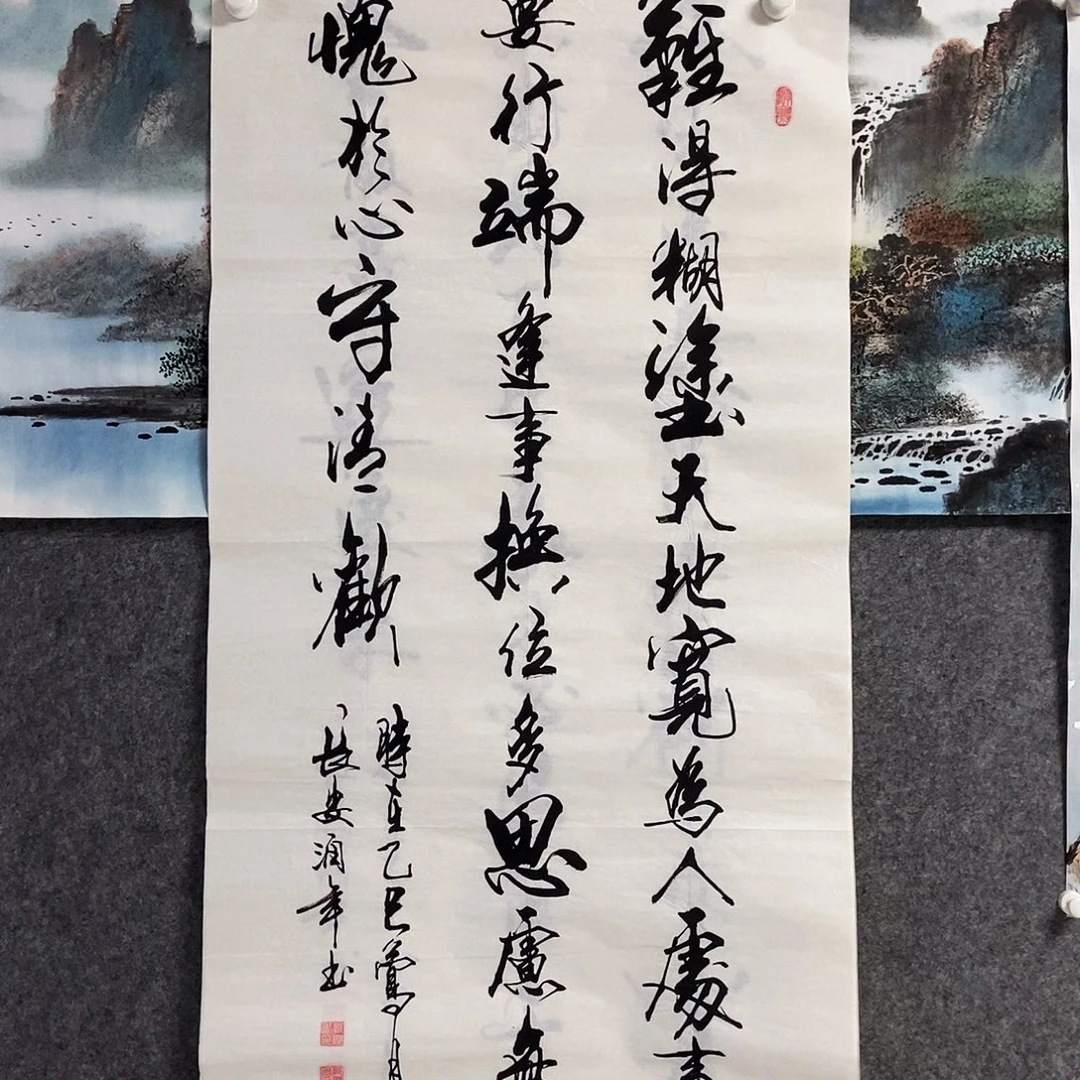 難得糊塗天地寬為人處事
要行端逢事換位多思慮無
愧於心守清歡
時在乙巳鶯月
長安潤年书